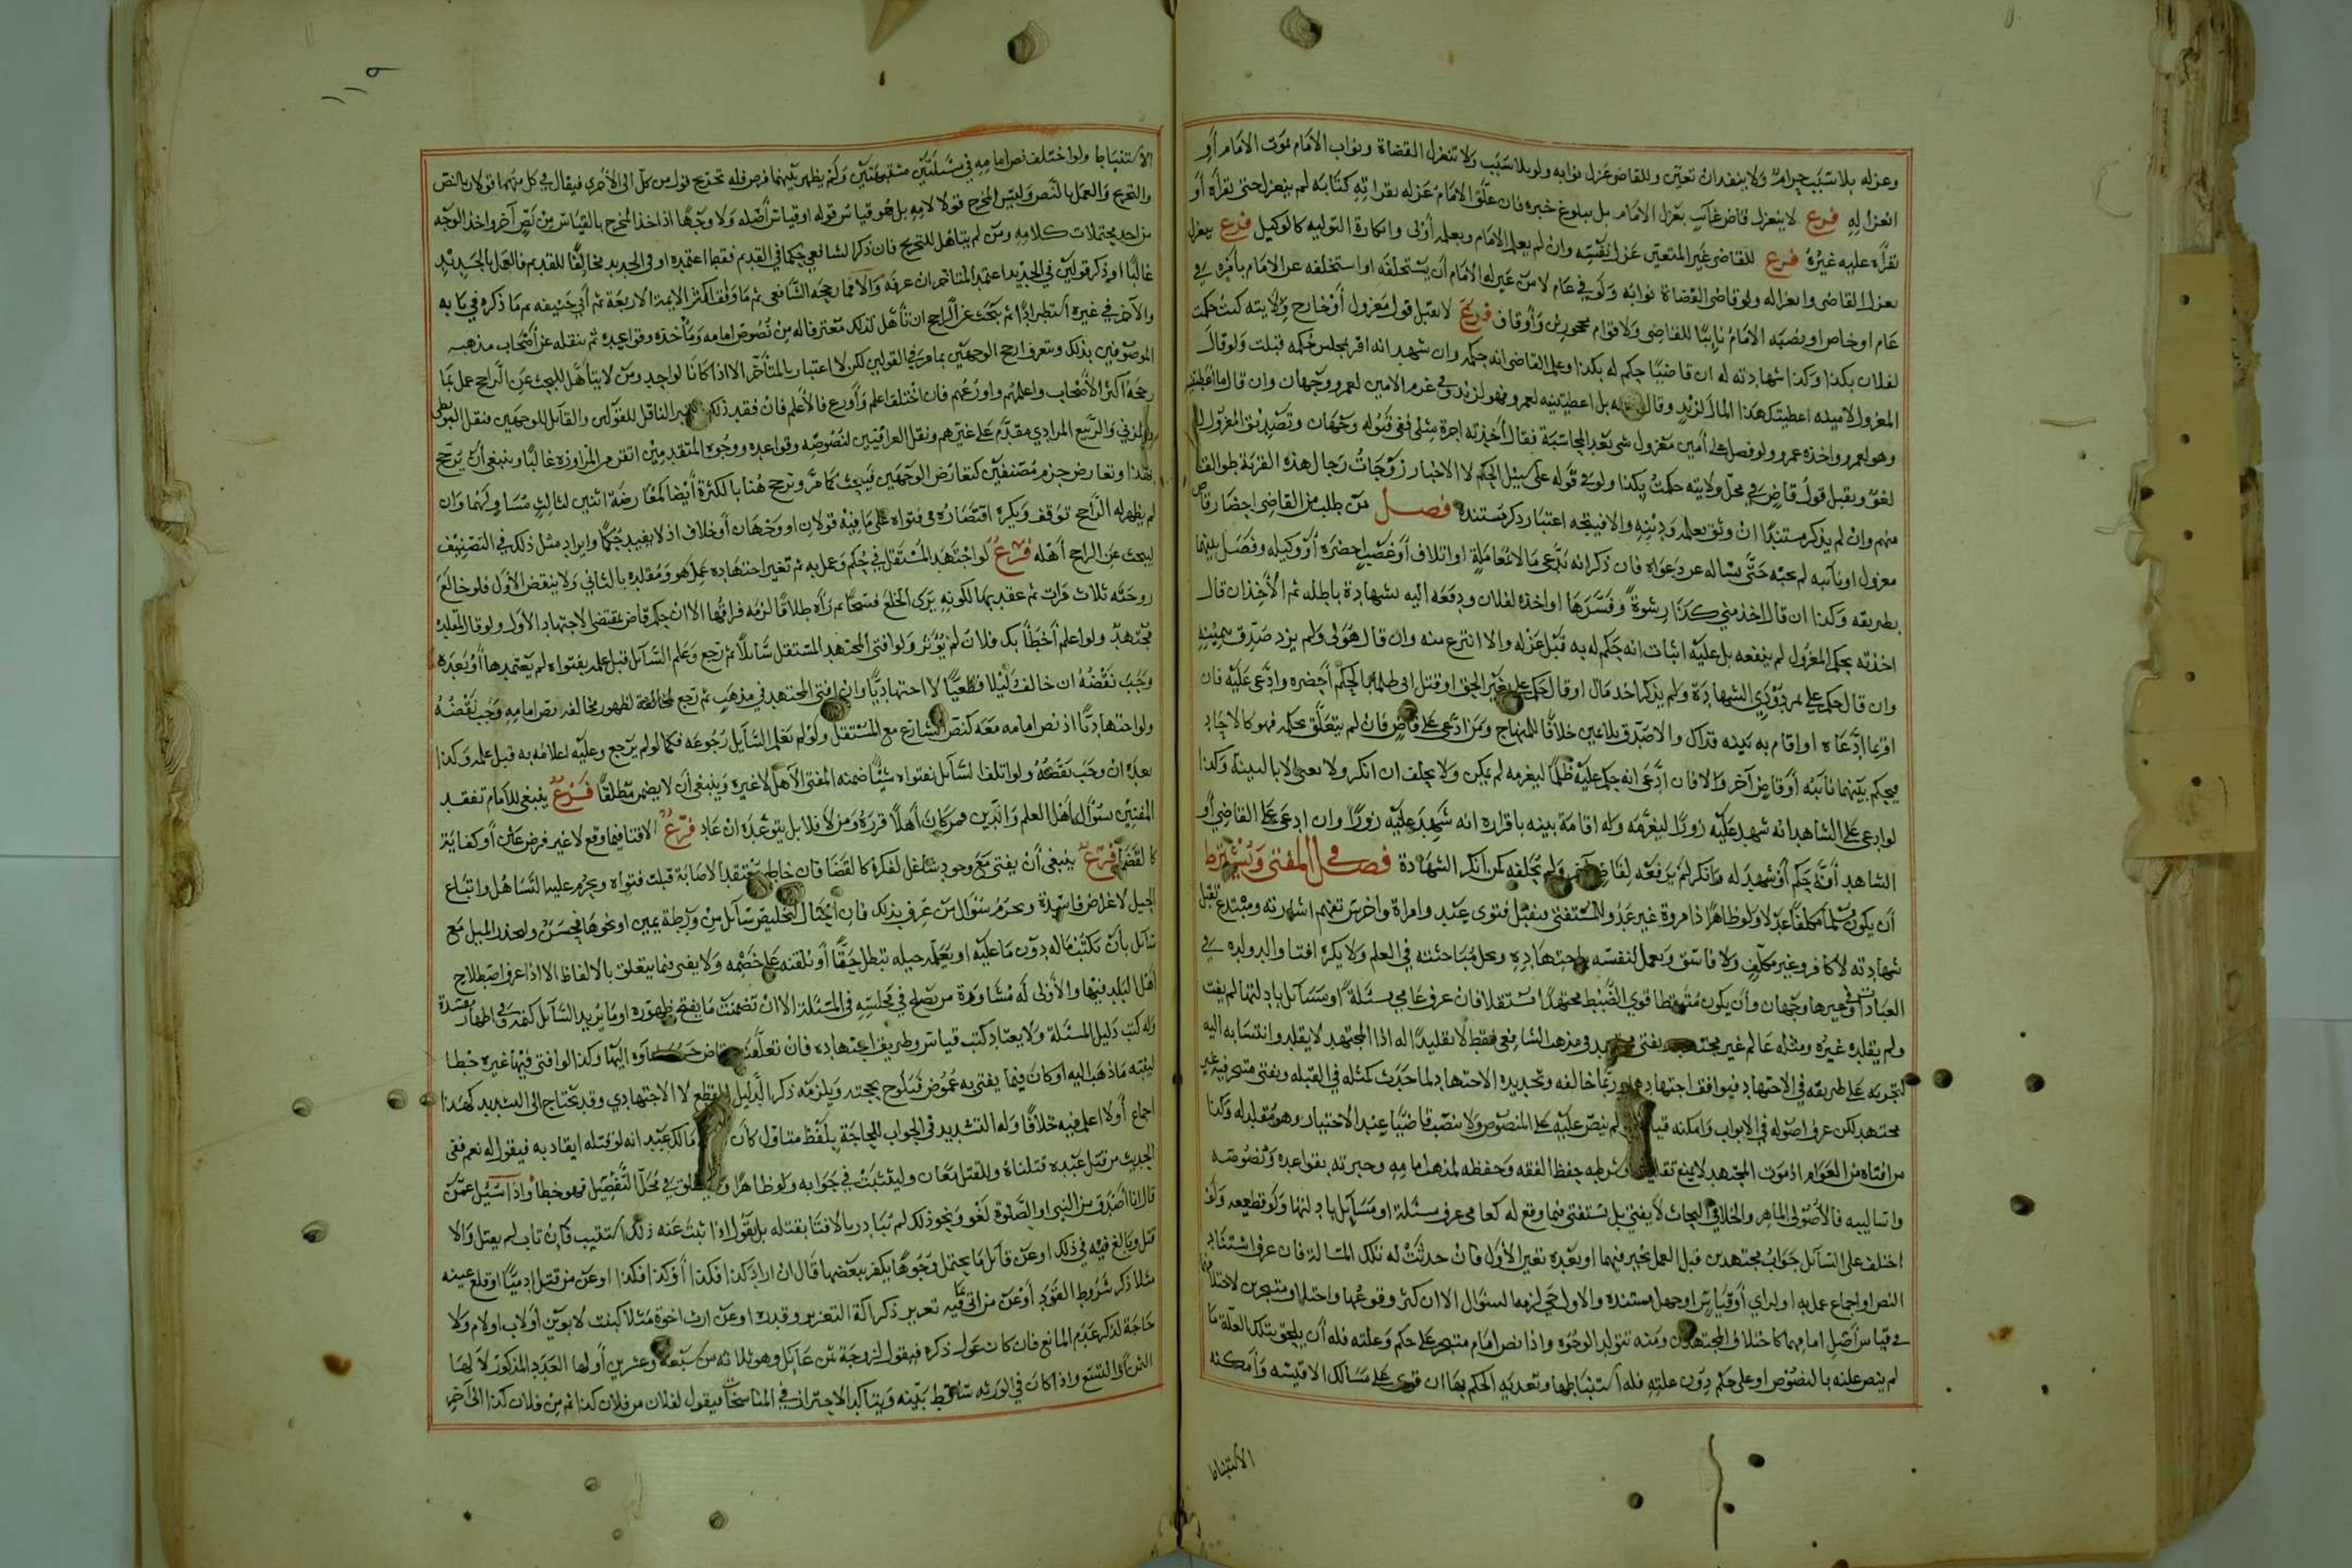 وعزله بلا سبب حرام ولا ينفذ ان تعين وللقاضي عزل نوابه ولو بلا سبب ولا تنعزل القضاة ونواب الامام بموت الامام او
انعزاله فرع لا ينعزل قاض غائب بعزل الامام بل ببلوغ خبره فان علق الامام عزله بقراته كتابه لم ينعزل حتى يقرأه او
يقرأ عليه غيره فرع للقاضي غير المتعين عزل نفسه وان لم يعلم الامام وبعلمه أولى وانكاره التولية كالوكيل فرع ينعزل
بعزل القاضي وانعزاله ولو قاضي القضاة نوابه ولو في عام لا من عين له الامام أن يستخلفه او استخلفه عن الامام بأمره في
عام او خاص او نصبه الامام نائبا للقاضي ولا قوام محجورين وأوقاف فرع لا يقبل قول معزول أو خارج ولايته كنت حكمت
لفلان بكذا وكذا شهادته له ان قاضيا حكم له بكذا وعلم القاضي انه حكمه وان شهد انه اقر بمجلس حكمه قبلت ولو قال
المعزول لامينه اعطيتك هذا المال لزيد وقال بل اعطيتنيه لعمرو فهو لزيد وفي غرم الامين لعمرو وجهان وان قال ما اعطيتنيه
وهو لعمرو واخذه عمرو ولو فصل على أمين معزول شي بعد المحاسبة فقال أخذته اجرة مثلي ففي قبوله وجهان وتصديق المعزول له
لغو ويقبل قول قاض في محل ولايته حكمت بكذا ولو في قوله على سبيل الحكم لا الاخبار زوجات رجال هذه القرية طوالق
منهم وان لم يذكر مستندا ان وثق بعلمه ودينه والا فيتجه اعتبار ذكر مستنده فصل من طلب من القاضي احضار قاض
معزول او نائبه لم يجبه حتى يساله عن دعواه فان ذكر انه يدعي مالا لمعاملة او اتلاف أو غصب احضره أو وكيله وفصل بينهما
بطريقه وكذا ان قال اخذ مني كذا رشوة وفسرها او اخذه لفلان ودفعه اليه بشهادة باطلة ثم الآخذ ان قال
اخذته بحكم المعزول لم ينفعه بل عليه اثبات انه حكم له به قبل عزله والا انتزع منه وان قال هو لي ولم يزد صدق بيمينه
وان قال حكم علي بمردودي الشهادة ولم يذكر اخذ مال او قال حكم علي بغير الحق او قتل ابي ظلما بالحكم أحضره وادعى عليه فان
اقر بما ادعاه او اقام به بينه فذاك والا صدق بلا يمين خلافا للمنهاج ومن ادعى على قاض فان لم يتعلق بحكمه فهو كالاحاد
فيحكم بينهما نائبه أو قاض آخر والا فان ادعى انه حكم عليه ظلما ليغرمه لم يمكن ولا يحلف ان انكر ولا يغني الا بالبينة وكذا
لو ادعى على الشاهد انه شهد عليه زورا ليغرمه وله اقامة بينه باقراره انه شهد عليه زورا وان ادعى على القاضي أو
الشاهد أنه حكم أو شهد له وانكر لم يرفعه لقاض آخر ولم يحلفه كمن انكر الشهادة فصل في المفتي ويشترط
أن يكون مسلما مكلفا عدلا ولو ظاهرا ذا مروة غير عدو للمستفتي فيقبل فتوى عبد وامراة واخرس تفهم اشارته ومبتدع تقبل
شهادته لا كافر وغير مكلف ولا فاسق ويعمل لنفسه باجتهاده ومحل مباحثته في العلم ولا يكره افتا والد ولده في
العبادات وفي غيرها وجهان وأن يكون متيقظا قوي الضبط مجتهدا استقلالا فان عرف عامي مسئلة او مسائل بادلتها لم يفت
ولم يقلده غيره ومثله عالم غير مجتهد يفتي في مذهب الشافعي فقط لا تقليدا له اذ المجتهد لا يقلد وانتسابه اليه
لجريه على طريقه في الاجتهاد فيوافق اجتهاده وربما خالفه وتجديده الاجتهاد لما حدث كمثله في القبلة ويفتي متبحر فيه غير
مجتهد لكن عرف اصوله في الابواب وامكنه قياس لم ينص عليه على المنصوص ولا ينصب قاضيا عند الاختيار وهو مقلد له وكذا
من افتاه من العوام اذ موت المجتهد لا يمنع تقليده وشرطه حفظ الفقه وحفظه لمذهب امامه وخبرته بقواعده ونصوصه
واساليبه فالأصولي الماهر والخلافي البحاث لا يفتي بل يستفتي فيما وقع له كعامي عرف مسئلة او مسائل بادلتها ولو قطعيه ولو
اختلف على السائل جواب مجتهدين قبل العمل تخير فيهما او بعده تعين الأول فان حدثت له تلك المسالة فان عرف استناد
النص او اجماع عمل به او لراي أو قياس او جهل مستنده والاول حي لزمه السؤال الا ان كثر وقوعها واختلاف متبحرين لاختلافهما
في قياس أصل امامهما كاختلاف المجتهدين ومنه تتولد الوجوه واذا نص امام متبحر على حكم وعلته فله أن يلحق بتلك العلة ما
لم ينص عليه بالنصوص او على حكم دون علته فله استنباطها وتعديه الحكم بها ان قوي على مسالك الاقيسه وأمكنه
الاستنباط
١١٩
الاستنباط ولو اختلف نص امامه في مسئلتين مشتبهتين ولم يظهر بينهما فرق فله تخريج قول من كل الى الأخرى فيقال في كل منهما قولان بالنص
والتخريج والعمل بالنص وليس المخرج قولا لامامه بل هو قياس قوله او قياس أصله ولا وجها اذا اخذ المخرج بالقياس من نص آخر واخذ الوجه
من احد محتملات كلامه ومن لم يتاهل للتخريج فان ذكر الشافعي حكما في القديم فقط اعتمده او في الجديد مخالفا للقديم فالعمل بالجديد
غالبا او ذكر قولين في الجديد اعتمد المتاخر ان عرفه والا فما رجحه الشافعي ثم ما وافق اكثر الايمة الاربعة ثم أبي حنيفه ثم ما ذكره في بابه
والآخر في غيره استطرادا ثم يبحث عن الراجح ان تأهل لذلك معترفا له من نصوص امامه ومأخذه وقواعده ثم ينقله عن أصحاب مذهبه
الموصوفين بذلك ويتعرف ارجح الوجهين بما مر في القولين لكن لا اعتبار بالمتأخر الا اذا كانا لواحد ومن لا يتأهل للبحث عن الراجح عمل بما
رجحه أكثر الأصحاب واعلمهم واورعهم فان اختلف اعلم وأورع فالأعلم فان فقد ذلك اعتبر الناقل للقولين والقائل للوجهين فنقل البويطي
والمزني والربيع المرادي مقدم على غيرهم ونقل العراقيين لنصوصه وقواعده ووجوه المتقدمين اتقن من المراوزه غالبا وينبغي أن يرجح
بهذا وتعارض جزم مصنفين كتعارض الوجهين فيبحث كما مر وترجح هنا بالكثرة أيضا كمعارضة اثنين لثالث مساو لهما وان
لم يظهر له الراجح توقف ويكره اقتصاره في فتواه على ما فيه قولان او وجهان أو خلاف اذ لا يفيد حكما وايراد مثل ذلك في التصنيف
ليبحث عن الراجح أهله فرع لو اجتهد المستقل في حكم وعمل به ثم تغير اجتهاده عمل هو ومقلده بالثاني ولا ينقض الأول فلو خالع
زوجته ثلاث مرات ثم عقد بها لكونه يرى الخلع فسخا ثم رآه طلاقا لزمه فراقها الا ان حكم قاض بمقتضى الاجتهاد الأول ولو قال لمقلده
مجتهد ولو اعلم أخطأ بك فلان لم يؤثر ولو افتى المجتهد المستقل سائلا ثم رجع وعلم السائل قبل عمله بفتواه لم يعتمدها أو بعده
وجب نقضه ان خالف دليلا قطعيا لا اجتهاديا وان افتى المجتهد في مذهب ثم رجع لمخالفة لظهور مخالفه نص امامه وجب نقضه
ولو اجتهاديا اذ نص امامه معه كنص الشارع مع المستقل ولو لم يعلم السائل رجوعه فكما لو لم يرجع وعليه اعلامه به قبل عمله وكذا
بعده ان وجب نقضه ولو اتلف السائل بفتواه شيئا ضمنه المفتي الأهل لا غيره وينبغي أن لا يضمن مطلقا فرع ينبغي للامام تفقد
المفتين بسؤال أهل العلم والدين فمن كان أهلا قرره ومن لا فلا بل يتوعده ان عاد فرع الافتا فيما وقع لا غير فرض عين أو كفاية
كالقضا فرع ينبغي أن يفتي مع وجود شاغل لفكره كالقضا فان خاطر معتقدا الاصابة قبلت فتواه ويحرم عليه التساهل واتباع
الحيل لاغراض فاسدة ويحرم سئوال من عرف بذلك فان احتال لتخليص سائل من ورطة يمين او نحوها فحسن وليحذر الميل مع
سائل بأن يكتب ماله دون ما عليه او يعلمه حيله تبطل حقا أو يلقنه على خصمه ولا يفتي فيما يتعلق بالالفاظ الا اذا عرف اصطلاح
أهل البلد فيها والأولى له مشاورة من يصلح في مجلسه في المسئلة الا ان تضمنت ما يقبح ظهوره او ما يريد السائل كتمه وفي اظهاره مفسدة
وله كتب دليل المسئلة ولا يعتاد كتب قياس وطريق اجتهاده فان تعلقت بقاض اليها وكذا لو افتى فيها غيره خطا
لينبه ما ذهب اليه او كان فيما يفتي به غموض فيلوح بحجته ويلزمه ذكر الدليل القطعي لا الاجتهادي وقد يحتاج الى التشديد كهذا
اجماع أو لا اعلم فيه خلافا وله التشديد في الجواب للحاجة بلفظ متاول كأن مالك عبد انه لو قتله ايقاد به فيقول له نعم ففي
الحديث من قتل عبده قتلناه وللقتل معان وليتثبت في جوابه ولو ظاهرا في محل التفصيل فهو خطأ واذا سئل عمن
قال انا اصدق من النبي او الصلوة لغو ونحو ذلك لم يبادر بالافتا بقتله بل يقول اذا ثبت عنه ذلك استتيب فان تاب لم يقتل والا
قتل وبالغ فيه في ذلك او عن قائل ما يحتمل وجوها يكفر ببعضها قال ان اراد كذا فكذا أو كذا فكذا او عن من قتل ادميا او قلع عينه
مثلا ذكر شروط القود أو عن من اتى ما فيه تعزير ذكر آلة التعزير وقدره او عن ارث اخوة مثلا كبنت لابوين أو لاب او لام ولا
حاجة لذكر عدم المانع فان كان عول ذكره فيقول لزوجة ثمن عائل وهو ثلاثة من سبعة وعشرين أو لها العدد المذكور لا لها
الثمن أو التسع واذا كان في الورثه ساقط بينه ويتاكد الاحتراز في المناسخات فيقول لفلان من فلان كذا ثم من فلان كذا الى آخره